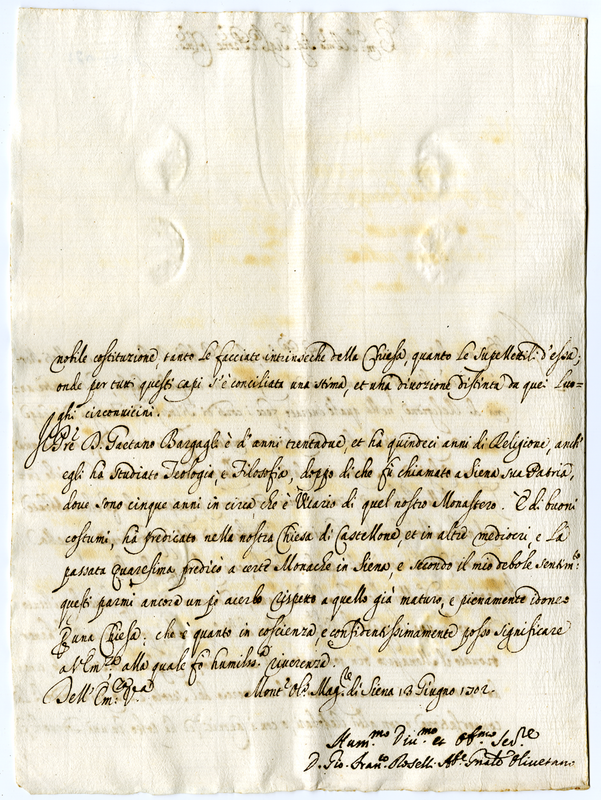 nobile costituzione, tanto le facciate intrinseche della Chiesa, quanto le Supellettili d'essa;
onde per tutti questi capi s'è conciliata una stima, et una divozione distinta da quei Luo-
ghi circonvicini.
Il Pre D. Gaetano Bargagli è d'anni trentadue, et ha quindeci anni di Religione, anch'
egli ha studiato Teologia, e Filosofia, doppo di che fu chiamato a Siena sua Patria,
dove sono cinque anni in circa che è Vicario di quel nostro Monastero. È di buoni
costumi, ha predicato nella nostra Chiesa di Castellone, et in altre mediocri, e La
passata Quaresima predicò a certe Monache in Siena, e secondo il mio debole sentim.to
questi parmi ancora un pò acerbo rispetto a quello già maturo, e pienamente idoneo
P una Chiesa; che è quanto in coscienza, e confidentissimamente posso significare
a V. Em.za alla quale fò humiliss.a riverenza.
Dell' Em.za V.ra Mont' Ol. Mag.re di Siena 13 Giugno 1702.
Hum.mo Div.mo et Obb.mo Ser.re
D. Gio. Fran.co Roselli Ab.e Gnãle Olivetano